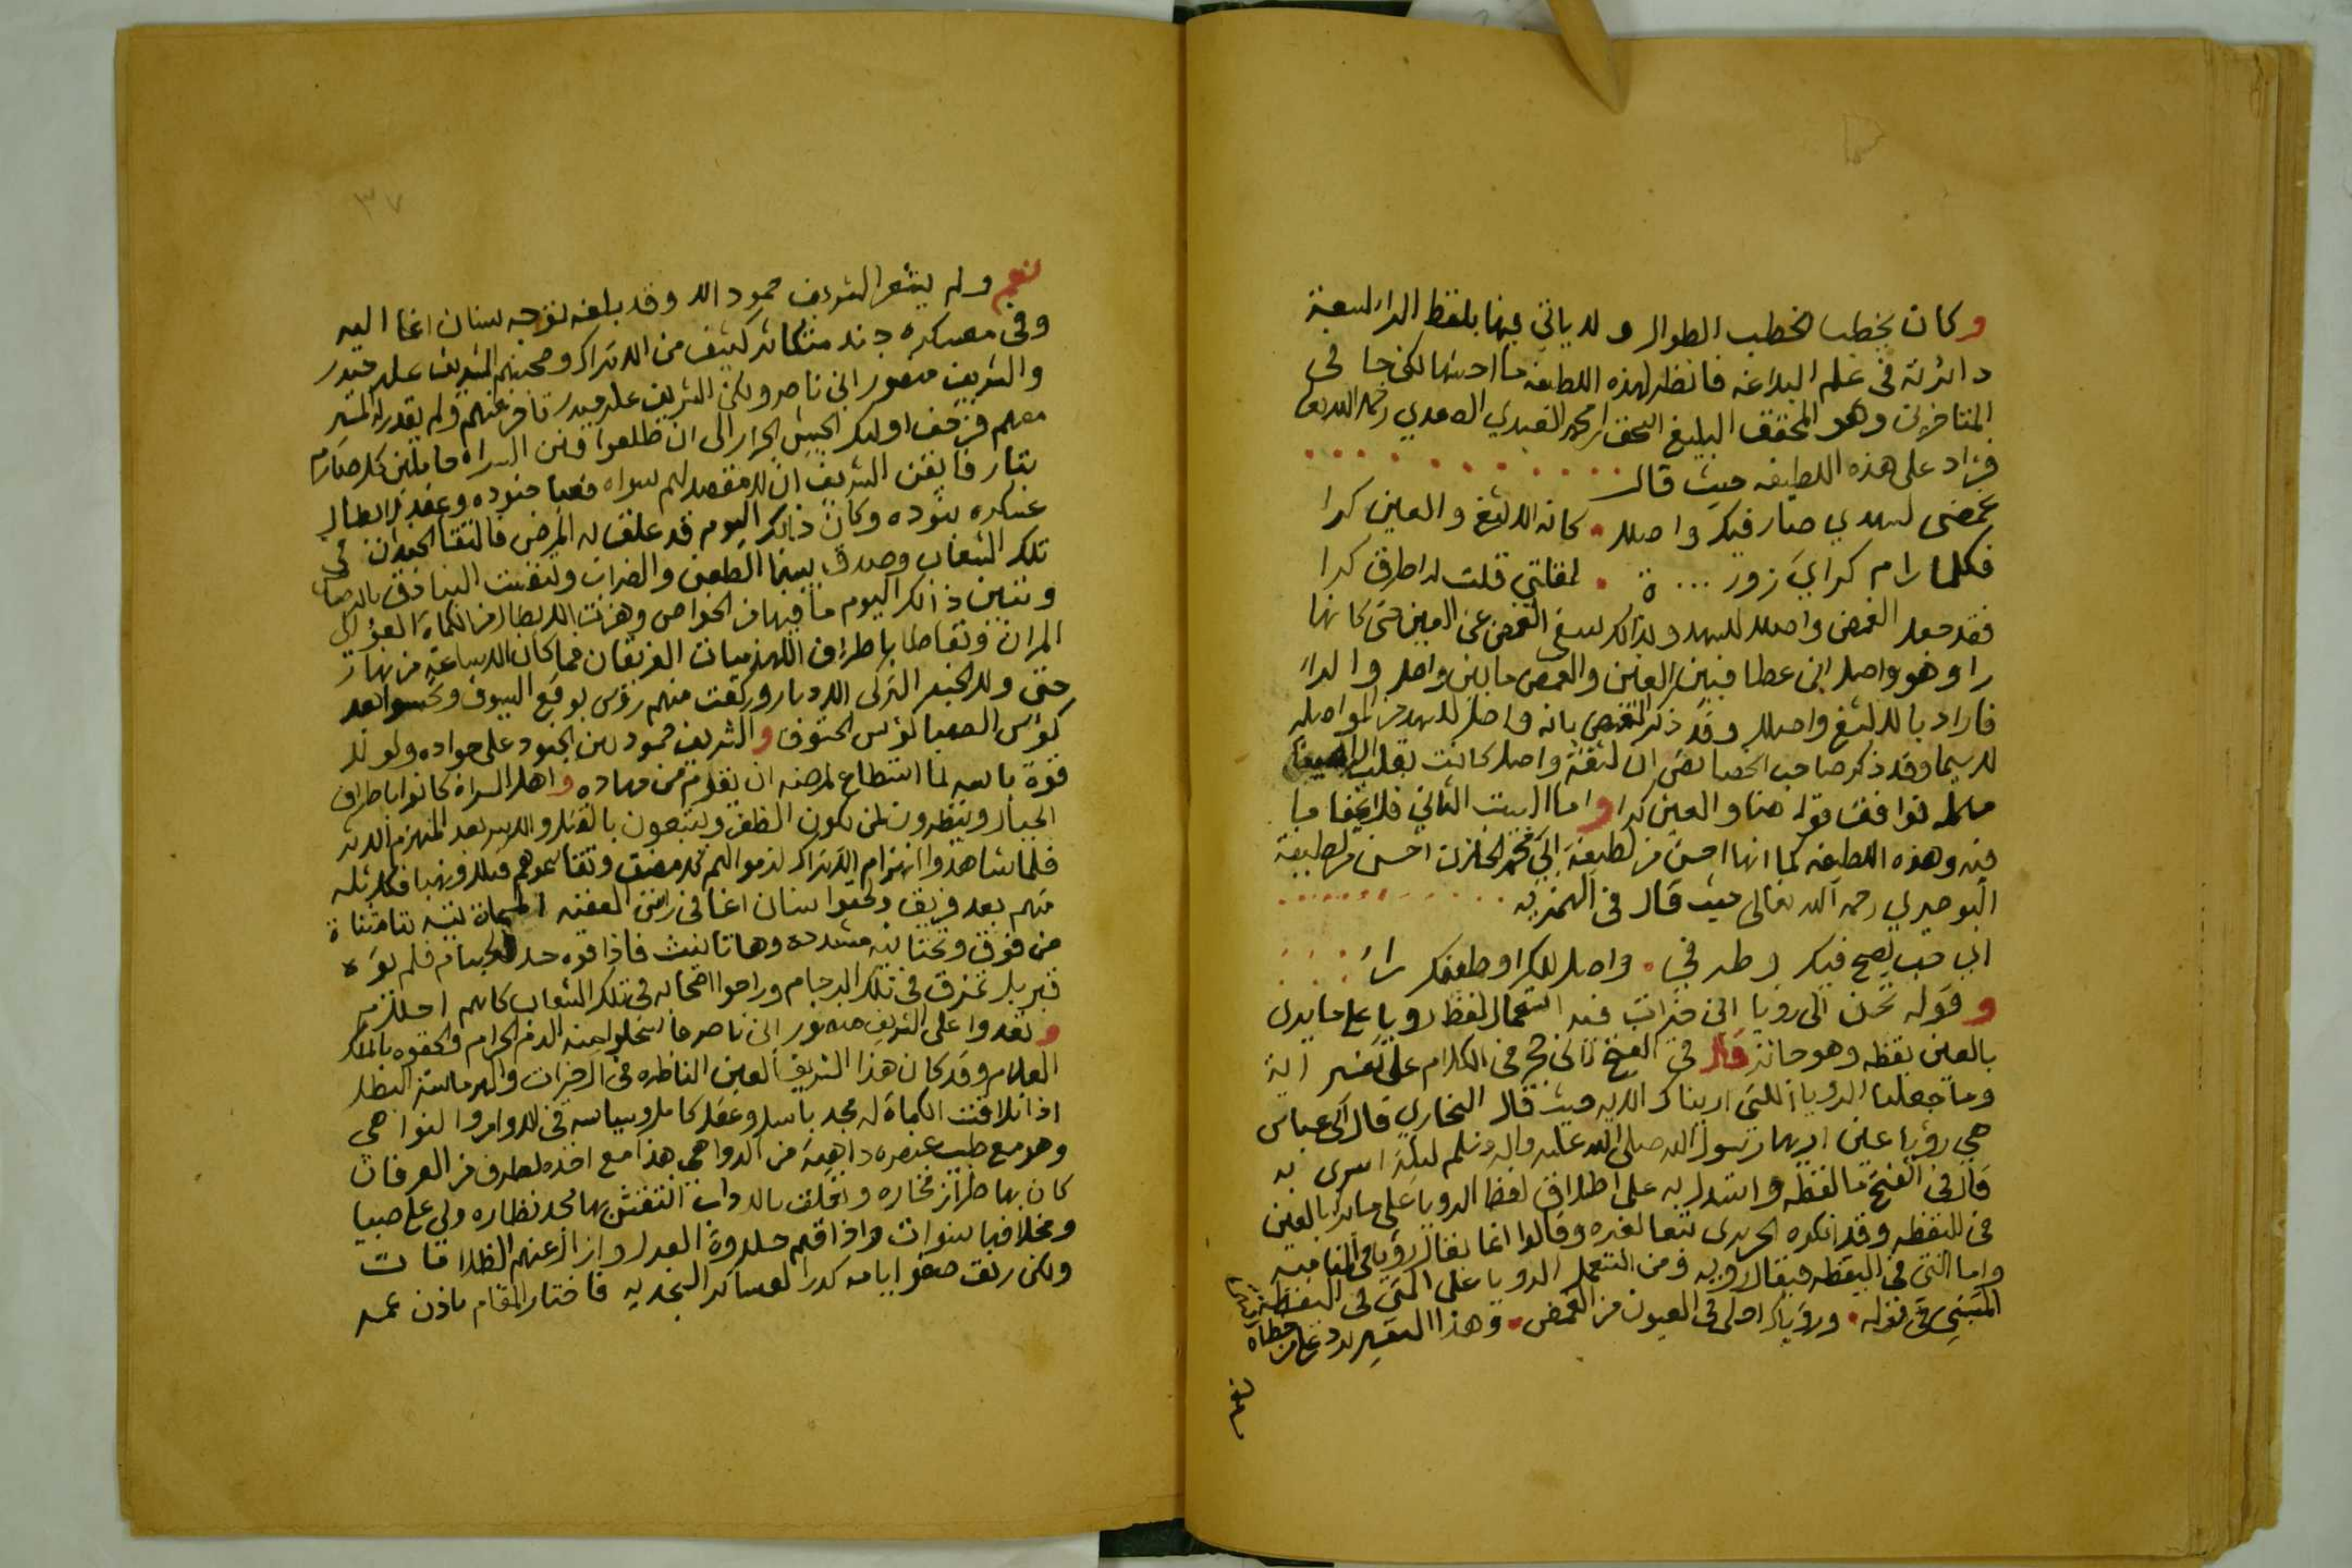 وكان يخطب الخطب الطوال ولا ياتي فيها بلفظ الراء لسعة
دائرته في علم البلاغه فانظر لهذه اللطيفه ما احسنها لكن جا في
المتاخرين وهو المحقق البليغ العبدي الصعدي رحمه الله
فزاد على هذه اللطيفه حيث قال
غمضي لسهدي صار فيك واصلا كانه الالثغ والعين كرا
فكلما رام كراي زورة لمقلتي قلت له اطرق كرا
فقد جعل الغمض واصلا للسهد ولذلك نفى الغمض عن العين حتى كانها
را وهو واصل ابن عطا فبين العين والغمض ما بين واصل والراء
فاراد بالالثغ واصلا وقد ذكر الغمض بانه واصل للسهد من المواصله
لا سيما وقد ذكر صاحب الخصائص ان لثغة واصل كانت بقلب الراء
توافقت قوله هنا والعين كرا واما البيت الثاني فلا يخفا ما
فيه وهذه اللطيفه كما انها احسن من لطيفة ابي محمد الخازن احسن من لطيفة
البوصيري رحمه الله تعالى حيث قال في الهمزيه
اي حب يصح فيك وطرفي واصل للكرا وطيفك راء
وقوله نحن الى رويا ابن خيرات فيه استعمال لفظ رويا على ما يرى
بالعين يقظه وهو جائز قال في الفتح ابن حجر في الكلام على تفسير اية
وما جعلنا الرويا التي اريناك الايه حيث قال البخاري قال ابن عباس
هي رؤيا عين اريها رسول الله صلى الله عليه واله وسلم ليلة اسري به
قال في الفتح ما لفظه واستدل به على اطلاق لفظ الرويا على ما يرى بالعين
في اليقظه وقد انكره الحريري تبعا لغيره وقالوا انما يقال رؤيا في المناميه
واما التي في اليقظه فيقال رويه وممن استعمل الرويا على المرئي في اليقظة
المتنبي في قوله ورؤياك احلى في العيون من الغمض وهذا التفسير يرد على من خطاه
٣٧
نعم ولم يشعر الشريف حمود الا وقد بلغه توجه سنان اغا اليه
وفي معسكره جند متكاثر كثيف من الاتراك وصحبتهم الشريف علي حيدر
والشريف منصور ابن ناصر ولكن الشريف علي حيدر تاخر عنهم ولم يقدر له المسير
معهم فزحف اولئك الجيش الجرار الى ان طلعوا من السراه حاملين كل صارم
بتار فايقن الشريف ان لا مقصد لهم سواه فعبا جنوده وعقد لابطال
عسكره بنوده وكان ذلك اليوم قد علق به المرض فالتقا الجيشان في
تلك الشعاب وصدق بينهما الطعن والضراب وتنفست البنادق بالرصاص
وتبين ذلك اليوم ما فيها من الخواص وهزت الابطال من الكماة العوالي
المران وتقاطا باطراف اللهذميات الفريقان فما كان الا ساعة من نهار
حتى ولا الجند التركي الادبار وركعت منهم رؤس بوقع السيوف
كؤس الصهبا كؤس الحتوف والشريف حمود بين الجنود على جواده ولولا
قوة باسه لما استطاع لمرضه ان يقوم من مهاده واهل السراة كانوا باطراف
الجبال وينظرون لمن يكون الظفر ويتبعون بالقتل والاسر بعد المنهزم الاثر
فلما شاهدوا انهزام الاتراك وتقاسموهم قتلا ونهبا
منهم بعد فريق ولحقوا سنان اغا في راس العقبه المسماة تيه بتا مثناة
من فوق وتحتانيه مشدده وها تانيث فاذاقوه حد الحسام فلم يوره
قبر بل تمزق في تلك الاجام وراحوا اصحابه في تلك الشعاب كانهم احلام
وتعدوا على الشريف منصور ابن ناصر فاستحلوا منه الدم الحرام والحقوه بالملك
العلام وقد كان هذا الشريف العين الناظره في ال خيرات والهرماسة البطل
اذا تلاقت الكماة له مجد باسل وعقل كامل وسياسه في الاوامر والنواهي
وهو مع طيب عنصره داهية من الدواهي هذا مع اخذه لطرف من العرفان
كان بها طراز فخاره وتعلق بالادوات انتقش بها مجد نظاره ولي على صبيا
ومخلافها سنوات واذاقهم حلاوة العدل وازال عنهم الظلامات
ولكن ريق صفو ايامه كدر العساكر النجديه فاختار المقام باذن عمه